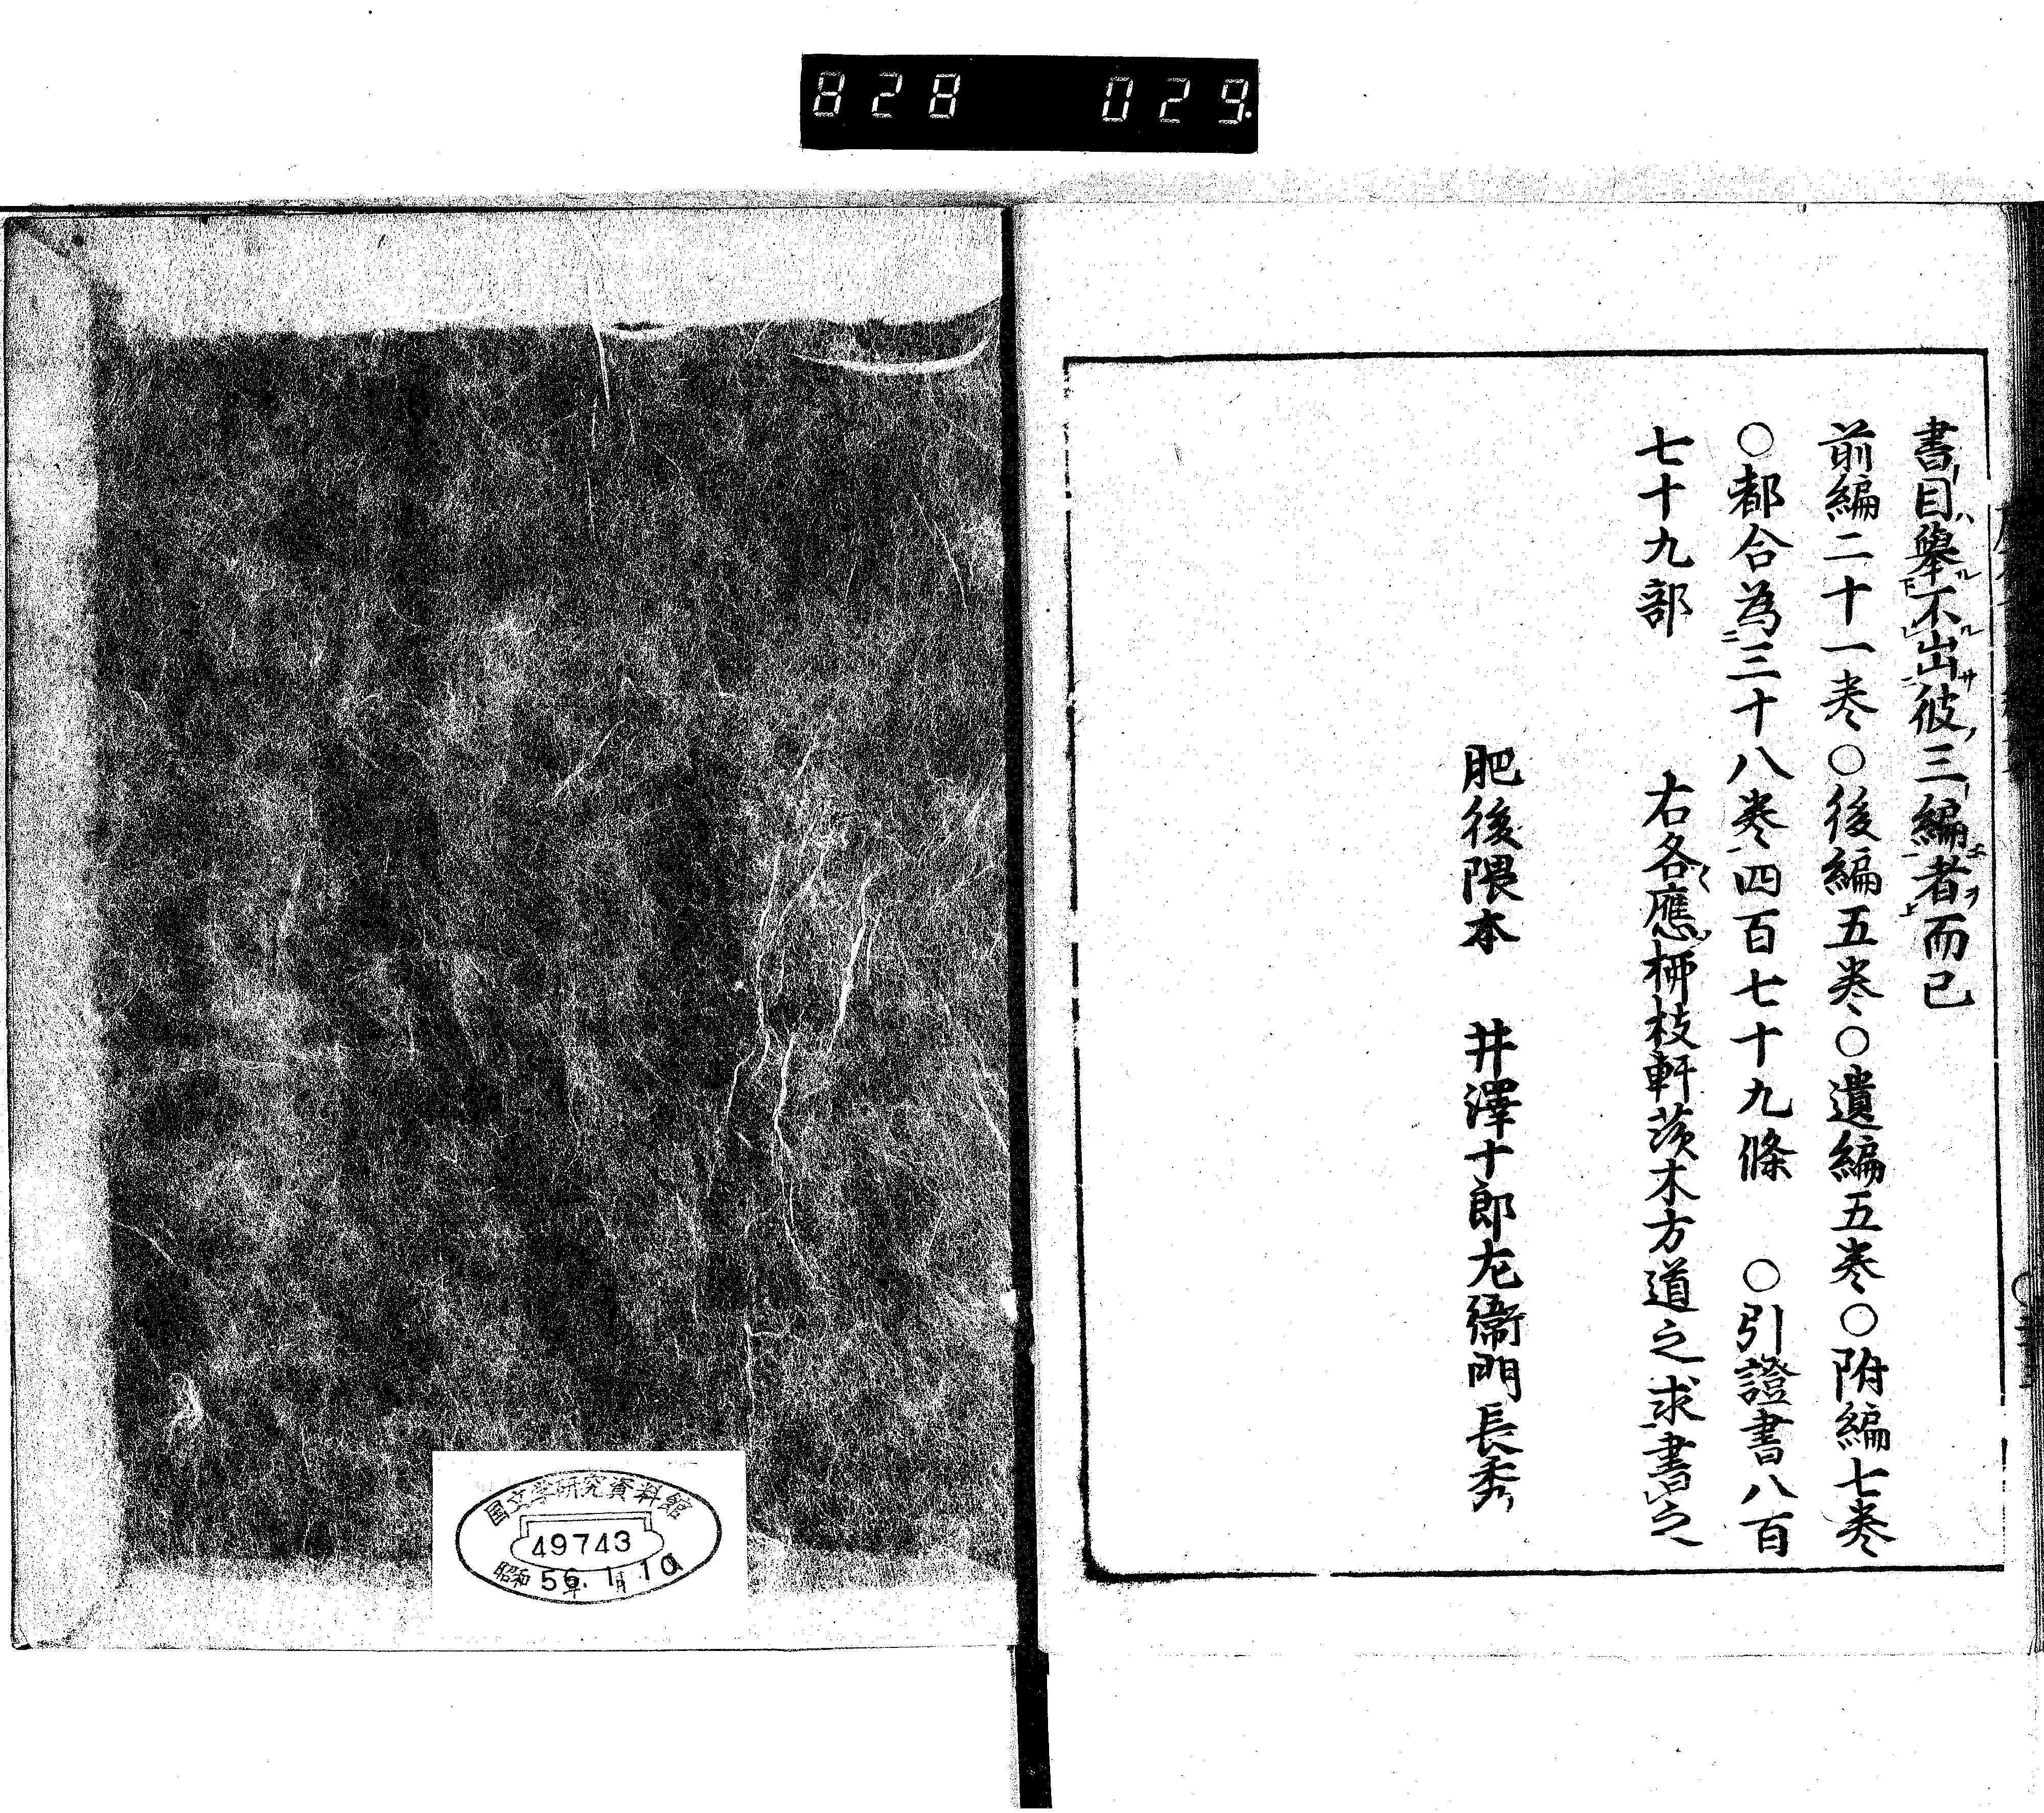 828 029.
書目ハ舉ル不ル出サ彼ノ三編ニ者ヲ而已
前編二十一巻○後編五巻○遺編五巻○附編七巻
○都合為三十八巻四百七十九條 ○引證書八百
七十九部 右各應柳枝軒茨木方道之求書之
肥後隈本 井澤十郎左衞門長秀
国文学研究資料館
49743
昭和56年1月10日